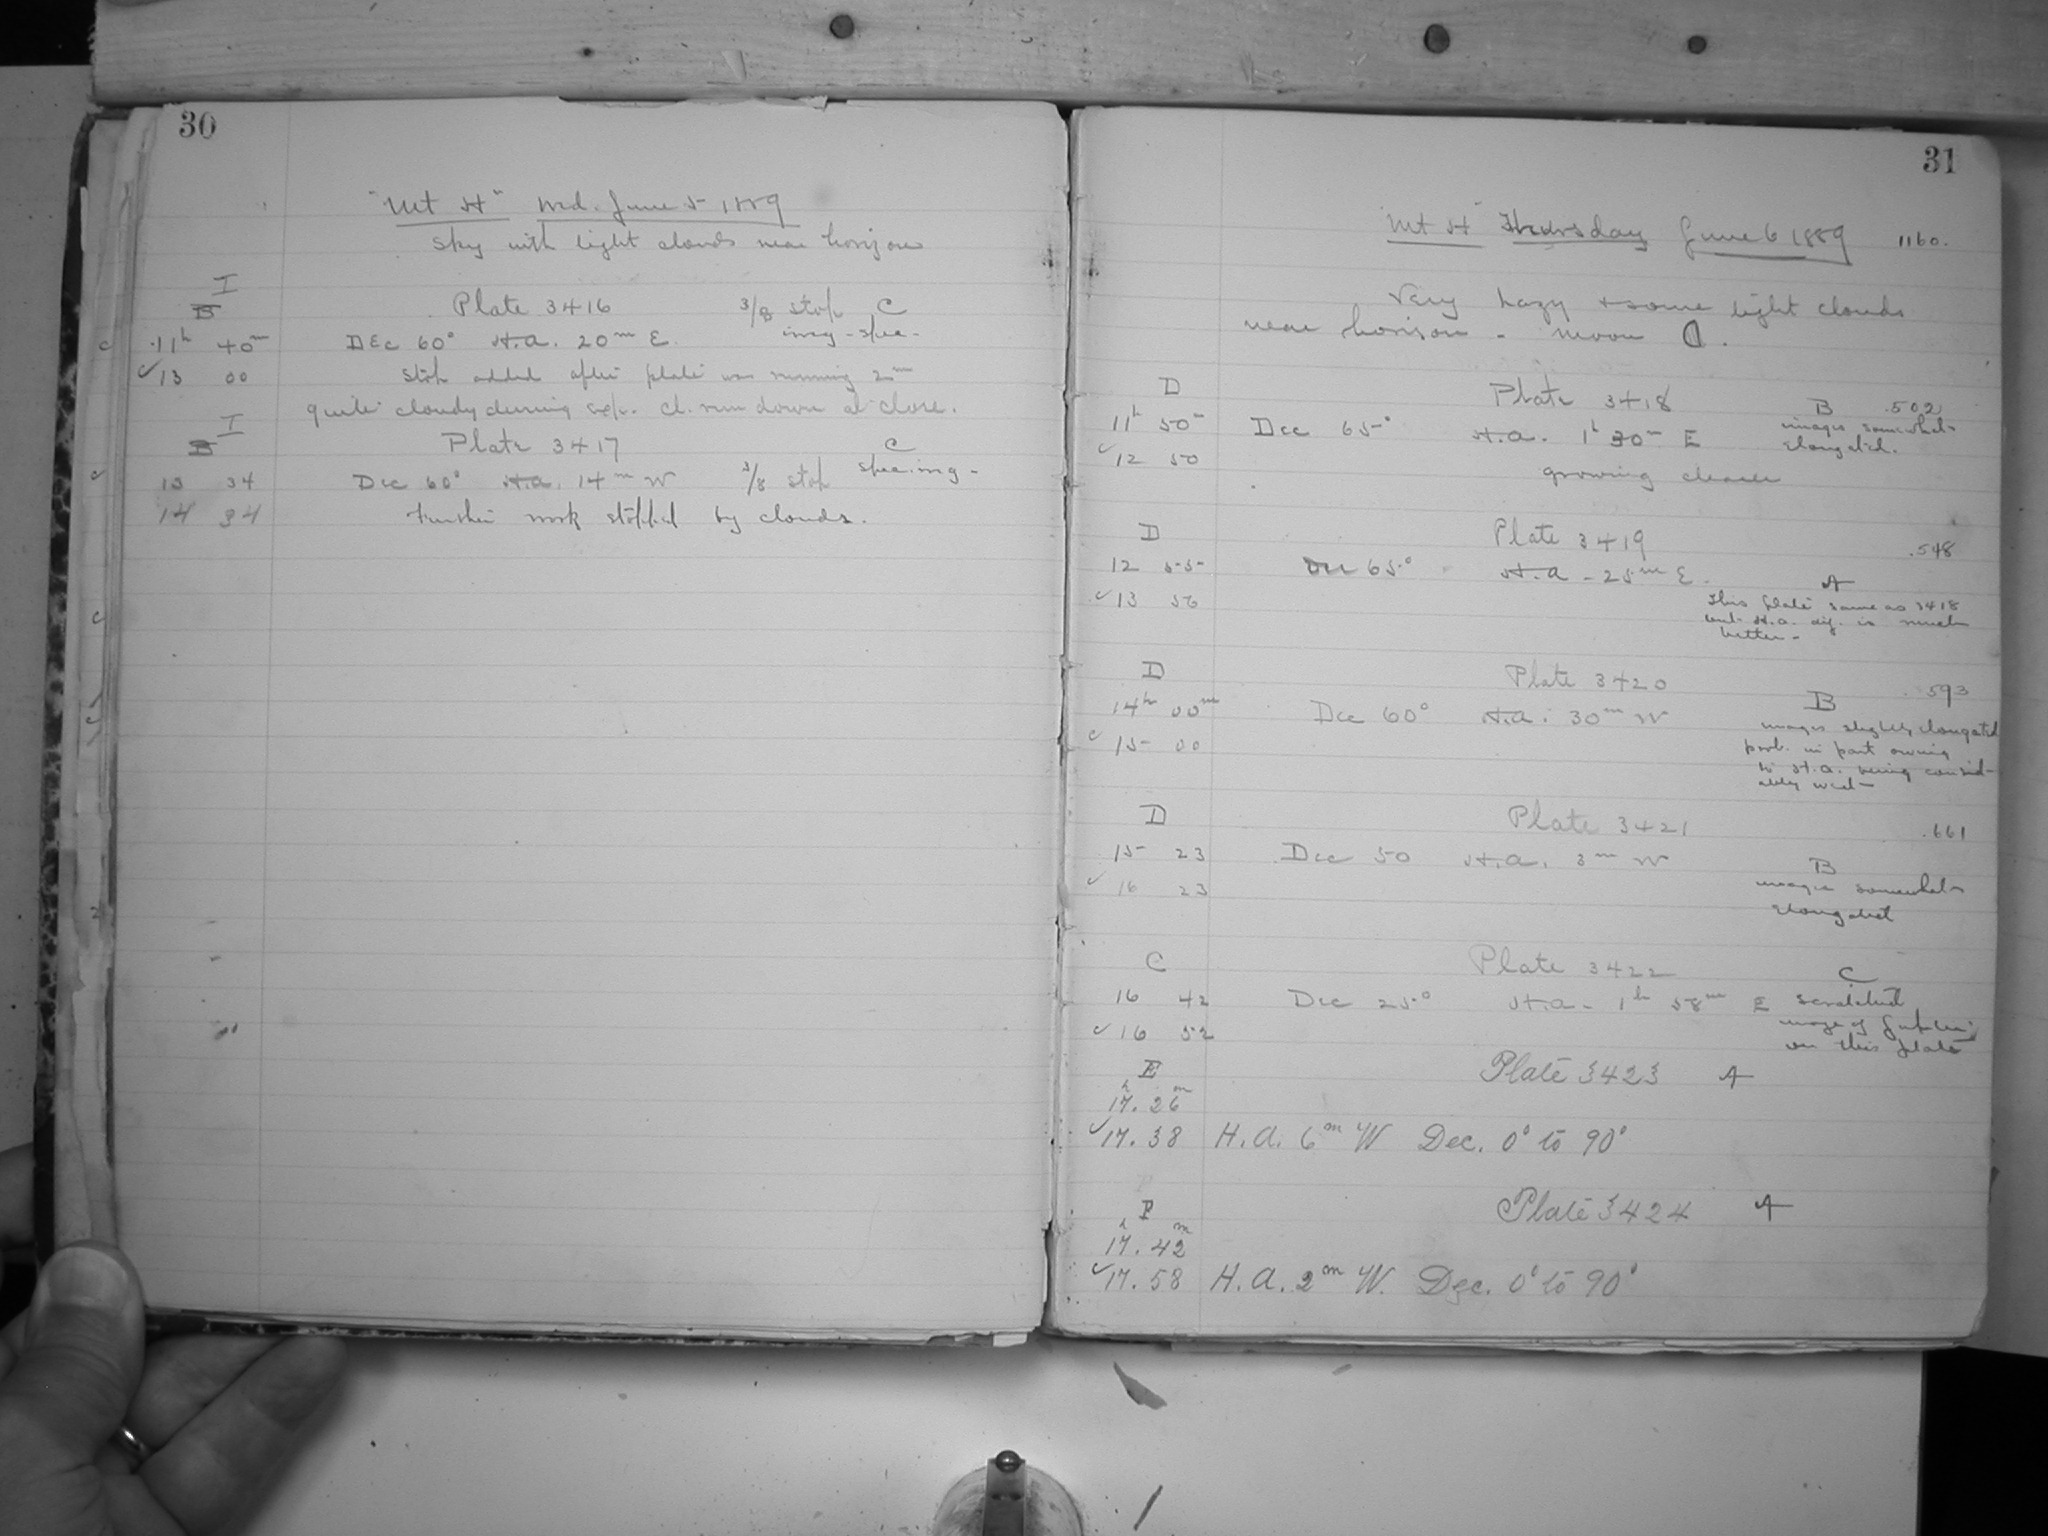 30
"Mt H" Wed. June 5 1889
Sky with light clouds near horizon
I
B
Plate 3416 3/8 stop C
11h 40m Dec 60° H.A. 20m E. img - spec -
13 00 stop added after plate was running 2m
quite cloudy during exp. cl. run down at close.
I
B
Plate 3417 C
13 34 Dec 60° H.A. 14m W 3/8 stop spec. img -
14 34 Further work stopped by clouds.
31
"Mt H" Thursday June 6 1889 1160.
Very hazy + some light clouds
near horizon - moon
D Plate 3418 B .502
11h 50m Dec 65° H.A. 1h 30m E images somewhat
elongated.
12 50 growing clearer
D Plate 3419 .548
12 55 Dec 65° H.A - 25m E. A
13 56 This plate same as 3418
but H.A. dif. is much
better -
D Plate 3420 .593
14h 00m Dec 60° H.A. 30m W B
images slightly elongated
15 00 prob. in part owing
to H.A. being consid-
ably west
D Plate 3421 .661
15 23 Dec 50 H.A. 3m W B
16 23 images somewhat
elongated
C Plate 3422 C
16 42 Dec 25° H.A - 1h 58m E scratched
16 52 image of Jupiter
on this plate
E Plate 3423 A
h m
17. 26
17. 38 H.A. 6m W Dec. 0° to 90°
F Plate 3424 A
h m
17. 42
17. 58 H.A. 2m W. Dec. 0° to 90°